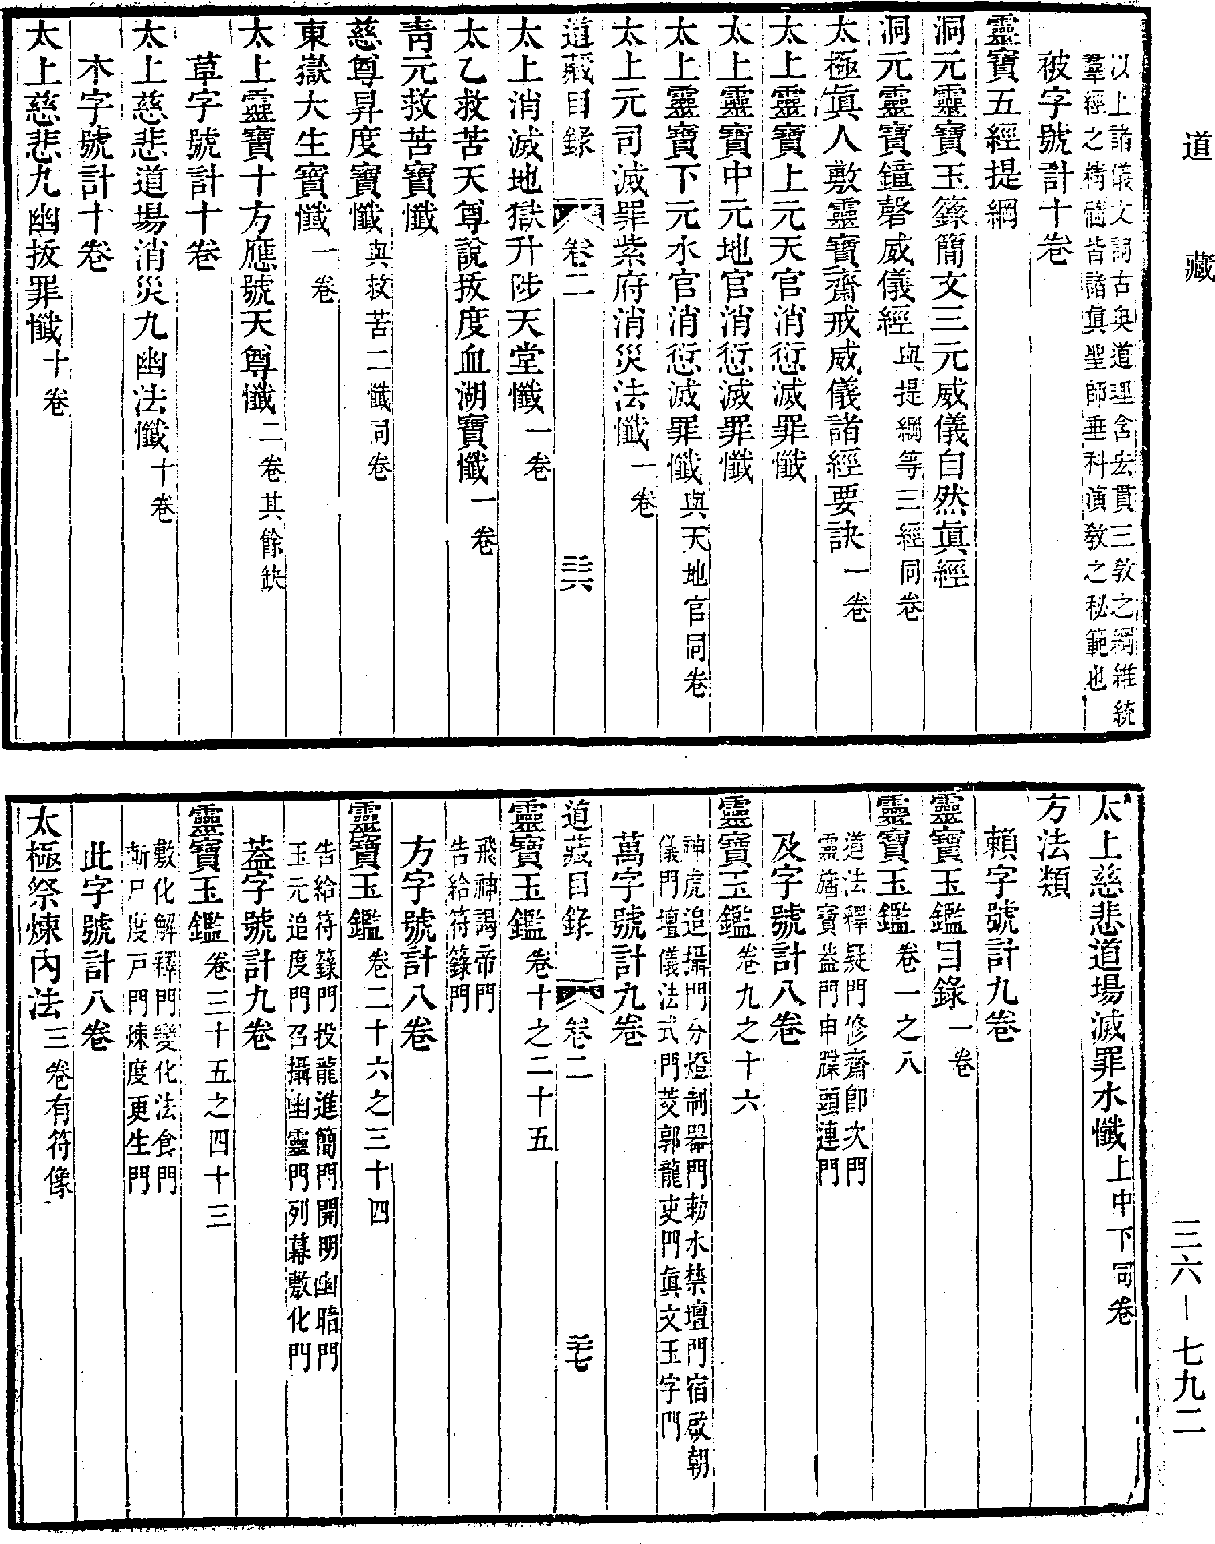 道藏
以上諸儀文詞古奧道理含宏貫三教之綱維統
羣經之精髓皆諸真聖師垂科演教之秘範也
被字號計十卷
靈寶五經提綱
洞元靈寶玉籙簡文三元威儀自然眞經
洞元靈寶鐘磬威儀經與提綱等三經同卷
太極眞人敷靈寶齋戒威儀諸經要訣一卷
太上靈寶上元天官消愆滅罪懺
太上靈寶中元地官消愆滅罪懺
太上靈寶下元水官消愆滅罪懺與天地官同卷
太上元司滅罪紫府消災法懺一卷
道藏目錄 卷二 三六
太上消滅地獄升陟天堂懺一卷
太乙救苦天尊說拔度血湖寶懺一卷
靑元救苦寶懺
慈尊昇度寶懺與救苦二懺同卷
東嶽大生寶懺一卷
太上靈寶十方應號天尊懺二卷其餘缺
草字號計十卷
太上慈悲道場消災九幽法懺十卷
木字號計十卷
太上慈悲九幽拔罪懺十卷
太上慈悲道場滅罪水懺上中下同卷
方法類
賴字號計九卷
靈寶玉鑑目錄一卷
靈寶玉鑑卷一之八
道法釋疑門修齋節次門
靈旛寶葢門申牒頭連門
及字號計八卷
靈寶玉鑑卷九之十六
神虎追攝門分燈制器門勅水禁壇門宿啟朝
儀門壇儀法式門芰郭龍吏門眞文玉字門
萬字號計九卷
道藏目錄 卷二 三七
靈寶玉鑑卷十之二十五
飛神謁帝門
告給符籙門
方字號計八卷
靈寶玉鑑卷二十六之三十四
告給符籙門投龍進簡門開明幽暗門
玉元追度門召攝幽靈門列幕敷化門
葢字號計九卷
靈寶玉鑑卷三十五之四十三
敷化解釋門變化法食門
斬尸度尸門煉度更生門
此字號計八卷
太極祭煉內法三卷有符像
三六—七九二